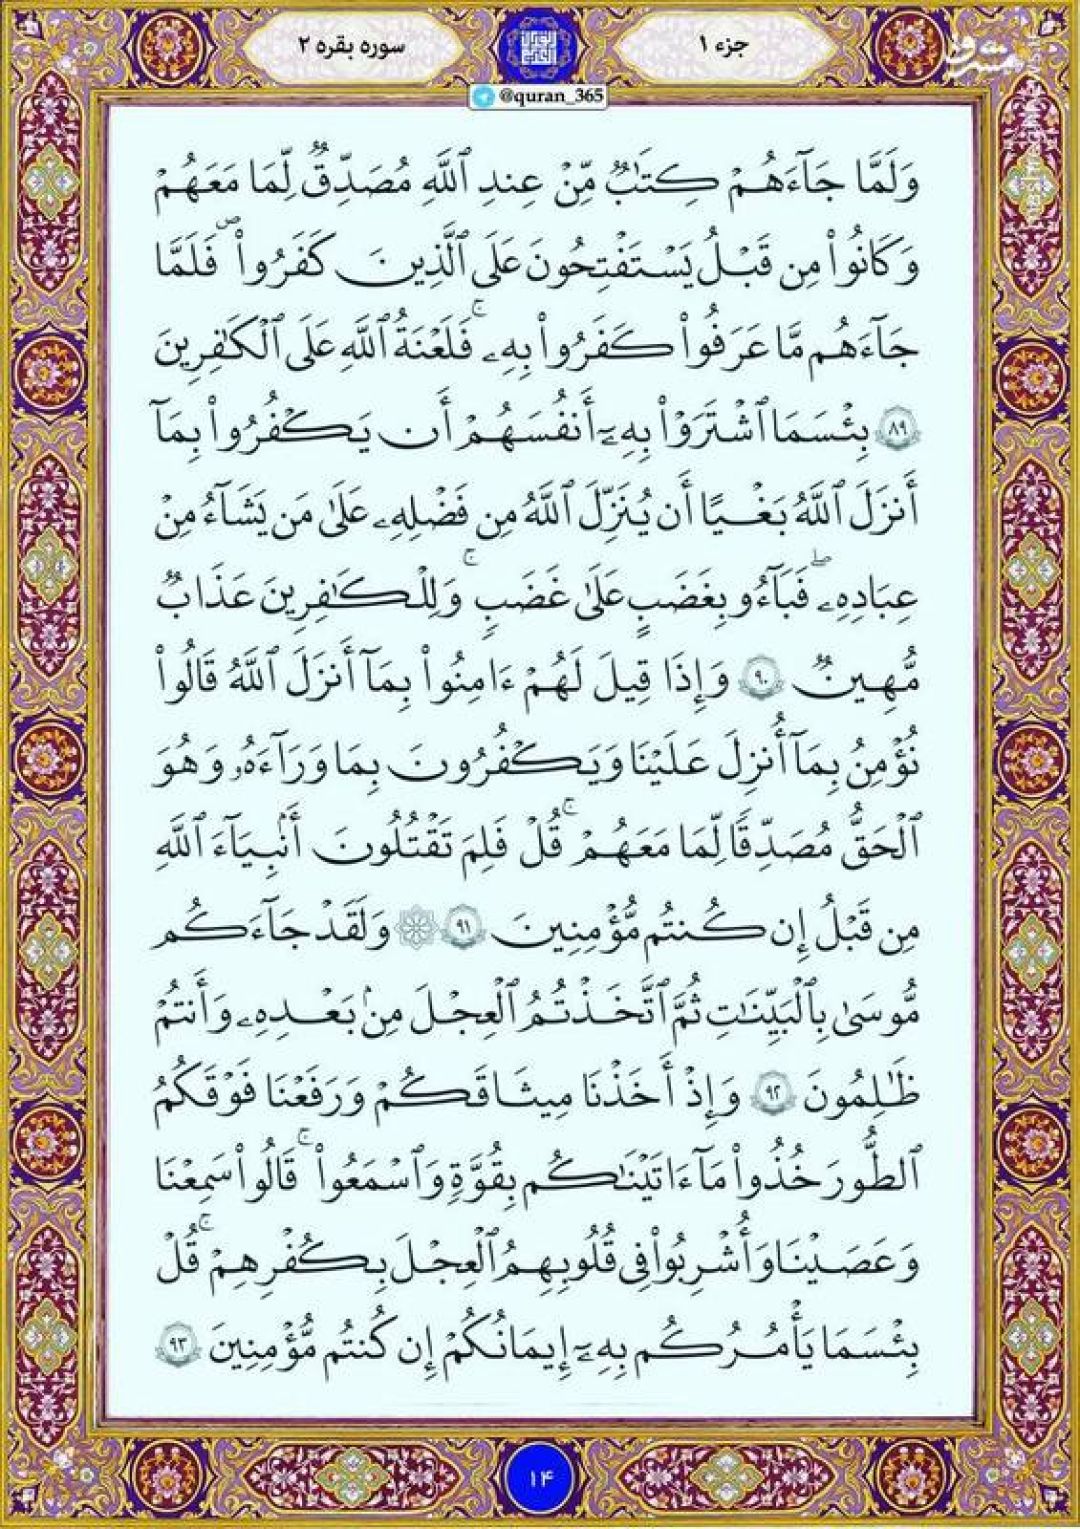 جزء ۱
سوره بقره ۲
مشرق
@quran_365
وَلَمَّا جَآءَهُمْ كِتَٰبٌ مِّنْ عِندِ ٱللَّهِ مُصَدِّقٌ لِّمَا مَعَهُمْ
وَكَانُوا۟ مِن قَبْلُ يَسْتَفْتِحُونَ عَلَى ٱلَّذِينَ كَفَرُوا۟ ۖ فَلَمَّا
جَآءَهُم مَّا عَرَفُوا۟ كَفَرُوا۟ بِهِۦ ۚ فَلَعْنَةُ ٱللَّهِ عَلَى ٱلْكَٰفِرِينَ
۸۹ بِئْسَمَا ٱشْتَرَوْا۟ بِهِۦٓ أَنفُسَهُمْ أَن يَكْفُرُوا۟ بِمَآ
أَنزَلَ ٱللَّهُ بَغْيًا أَن يُنَزِّلَ ٱللَّهُ مِن فَضْلِهِۦ عَلَىٰ مَن يَشَآءُ مِنْ
عِبَادِهِۦ ۖ فَبَآءُو بِغَضَبٍ عَلَىٰ غَضَبٍ ۚ وَلِلْكَٰفِرِينَ عَذَابٌ
مُّهِينٌ ۹۰ وَإِذَا قِيلَ لَهُمْ ءَامِنُوا۟ بِمَآ أَنزَلَ ٱللَّهُ قَالُوا۟
نُؤْمِنُ بِمَآ أُنزِلَ عَلَيْنَا وَيَكْفُرُونَ بِمَا وَرَآءَهُۥ وَهُوَ
ٱلْحَقُّ مُصَدِّقًا لِّمَا مَعَهُمْ ۗ قُلْ فَلِمَ تَقْتُلُونَ أَنۢبِيَآءَ ٱللَّهِ
مِن قَبْلُ إِن كُنتُم مُّؤْمِنِينَ ۹۱ ۞ وَلَقَدْ جَآءَكُم
مُّوسَىٰ بِٱلْبَيِّنَٰتِ ثُمَّ ٱتَّخَذْتُمُ ٱلْعِجْلَ مِنۢ بَعْدِهِۦ وَأَنتُمْ
ظَٰلِمُونَ ۹۲ وَإِذْ أَخَذْنَا مِيثَٰقَكُمْ وَرَفَعْنَا فَوْقَكُمُ
ٱلطُّورَ خُذُوا۟ مَآ ءَاتَيْنَٰكُم بِقُوَّةٍ وَٱسْمَعُوا۟ ۖ قَالُوا۟ سَمِعْنَا
وَعَصَيْنَا وَأُشْرِبُوا۟ فِى قُلُوبِهِمُ ٱلْعِجْلَ بِكُفْرِهِمْ ۚ قُلْ
بِئْسَمَا يَأْمُرُكُم بِهِۦٓ إِيمَٰنُكُمْ إِن كُنتُم مُّؤْمِنِينَ ۹۳
۱۴